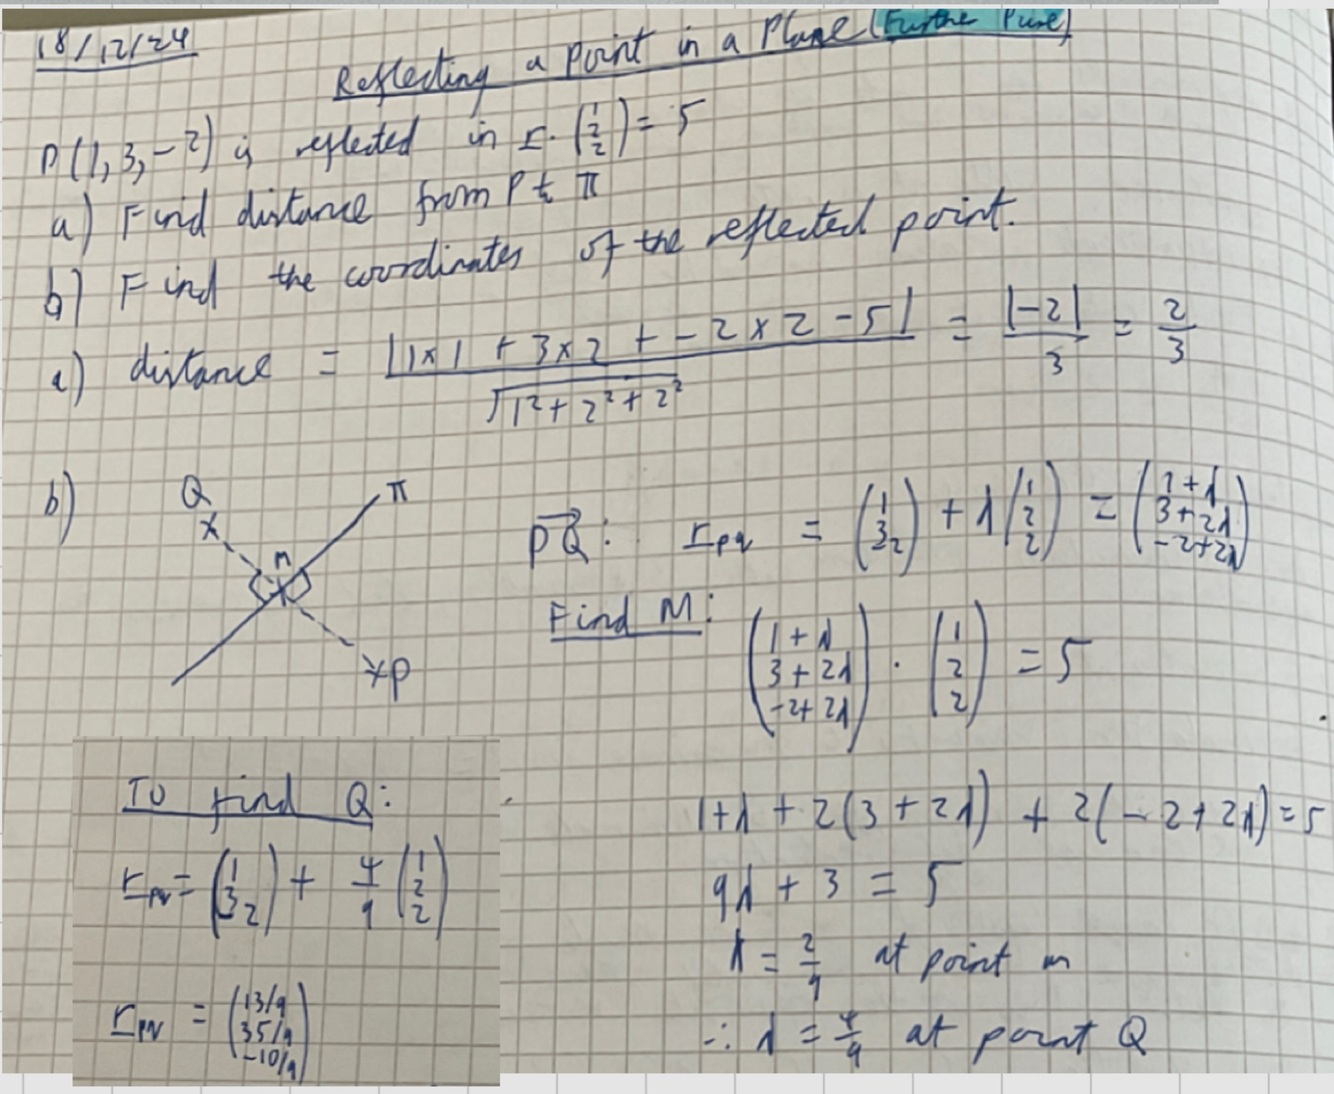 18/12/24
Reflecting a point in a Plane (Further Pure)
P(1,3,-2) is reflected in r. (1 2 2) = 5
a) Find distance from P to π
b) Find the coordinates of the reflected point.
a) distance = |1×1 + 3×2 + -2×2 -5| / √1²+2²+2² = |-2| / 3 = 2/3
b)
Q
π
m
P
PQ: r_PQ = (1 3 -2) + λ(1 2 2) = (1+λ 3+2λ -2+2λ)
Find M: (1+λ 3+2λ -2+2λ) . (1 2 2) = 5
1+λ + 2(3+2λ) + 2(-2+2λ) = 5
9λ + 3 = 5
λ = 2/9 at point m
∴ λ = 4/9 at point Q
To find Q:
r_PQ = (1 3 -2) + 4/9 (1 2 2)
r_PQ = (13/9 35/9 -10/9)